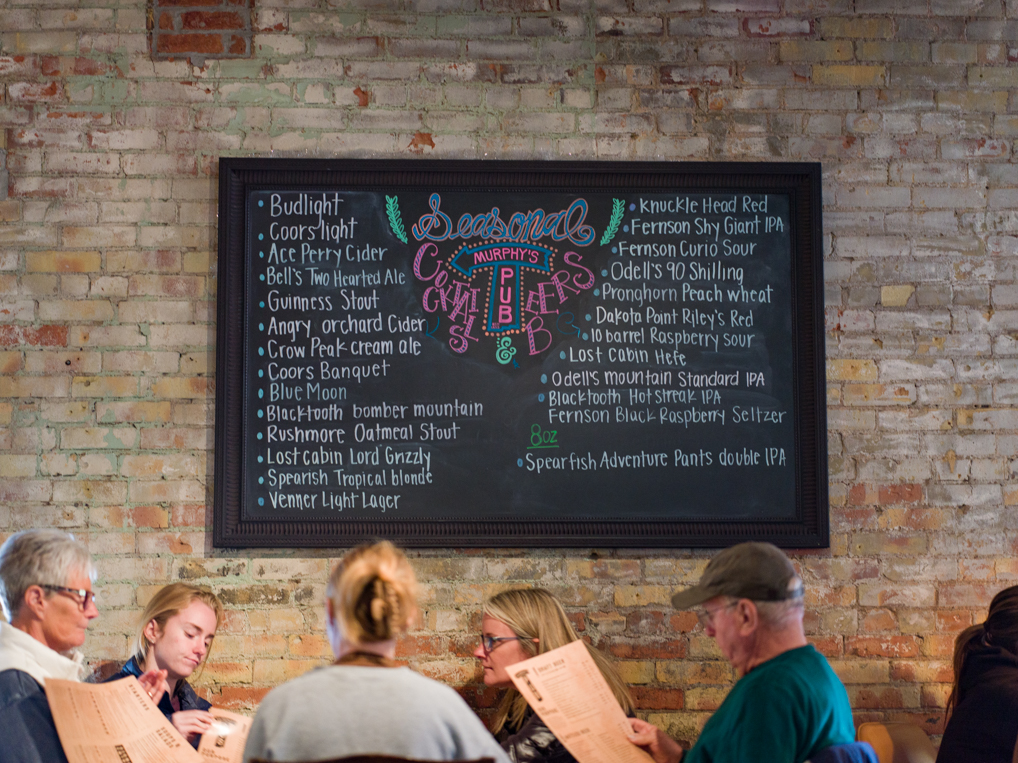 Budlight
Coors light
Ace Perry Cider
Bell's Two Hearted Ale
Guinness Stout
Angry orchard Cider
Crow Peak cream ale
Coors Banquet
Blue Moon
Blacktooth bomber mountain
Rushmore Oatmeal Stout
Lost cabin Lord Grizzly
Spearfish Tropical blonde
Venner Light Lager
Seasonal
Cocktails
MURPHY'S
PUB
&
BEERS
Knuckle Head Red
Fernson Shy Giant IPA
Fernson Curio Sour
Odell's 90 Shilling
Pronghorn Peach wheat
Dakota Point Riley's Red
10 barrel Raspberry sour
Lost Cabin Hefe
Odell's mountain Standard IPA
Blacktooth Hot Streak IPA
Fernson Black Raspberry Seltzer
8oz
Spearfish Adventure Pants double IPA